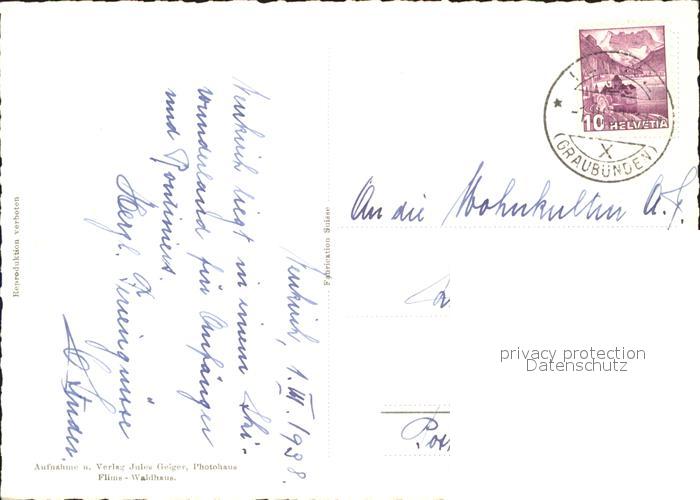 Neukirch, 1. III. 1938.
Neukirch liegt in einem Ski-
wunderland für Anfänger
und Routiniers.
Herzl. Feriengrüsse
Studer.
Reproduktion verboten
Fabrication Suisse
Aufnahme u. Verlag Jules Geiger, Photohaus
Flims - Waldhaus.
10 HELVETIA
X
(GRAUBÜNDEN)
An die Wohnkultur A.G.
privacy protection
Datenschutz